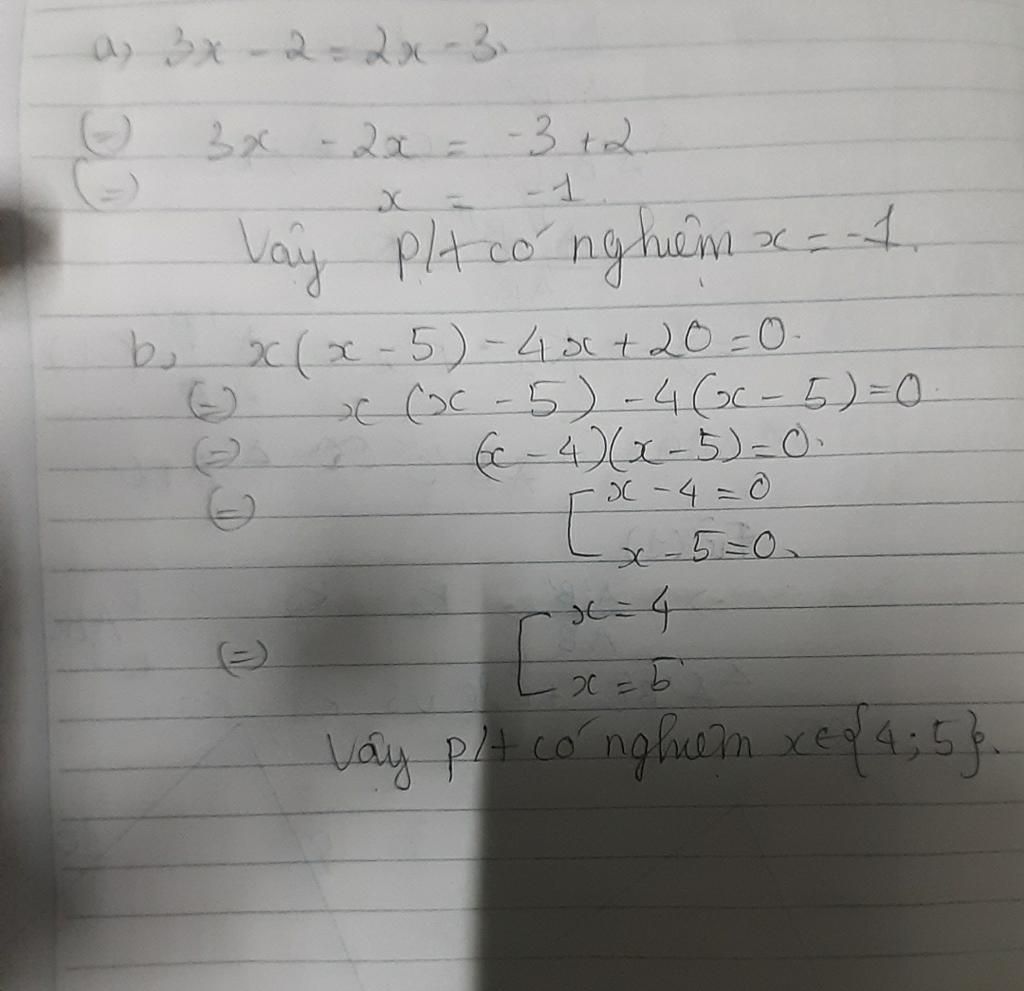 a, 3x - 2 = 2x - 3.
(=) 3x - 2x = -3 + 2
(=) x = -1.
Vậy p/t có nghiệm x = -1.
b, x(x - 5) - 4x + 20 = 0.
(=) x(x - 5) - 4(x - 5) = 0.
(=) (x - 4)(x - 5) = 0.
(=) [ x - 4 = 0
x - 5 = 0.
x = 4
(=) [
x = 5
Vậy p/t có nghiệm x ∈ {4; 5}.